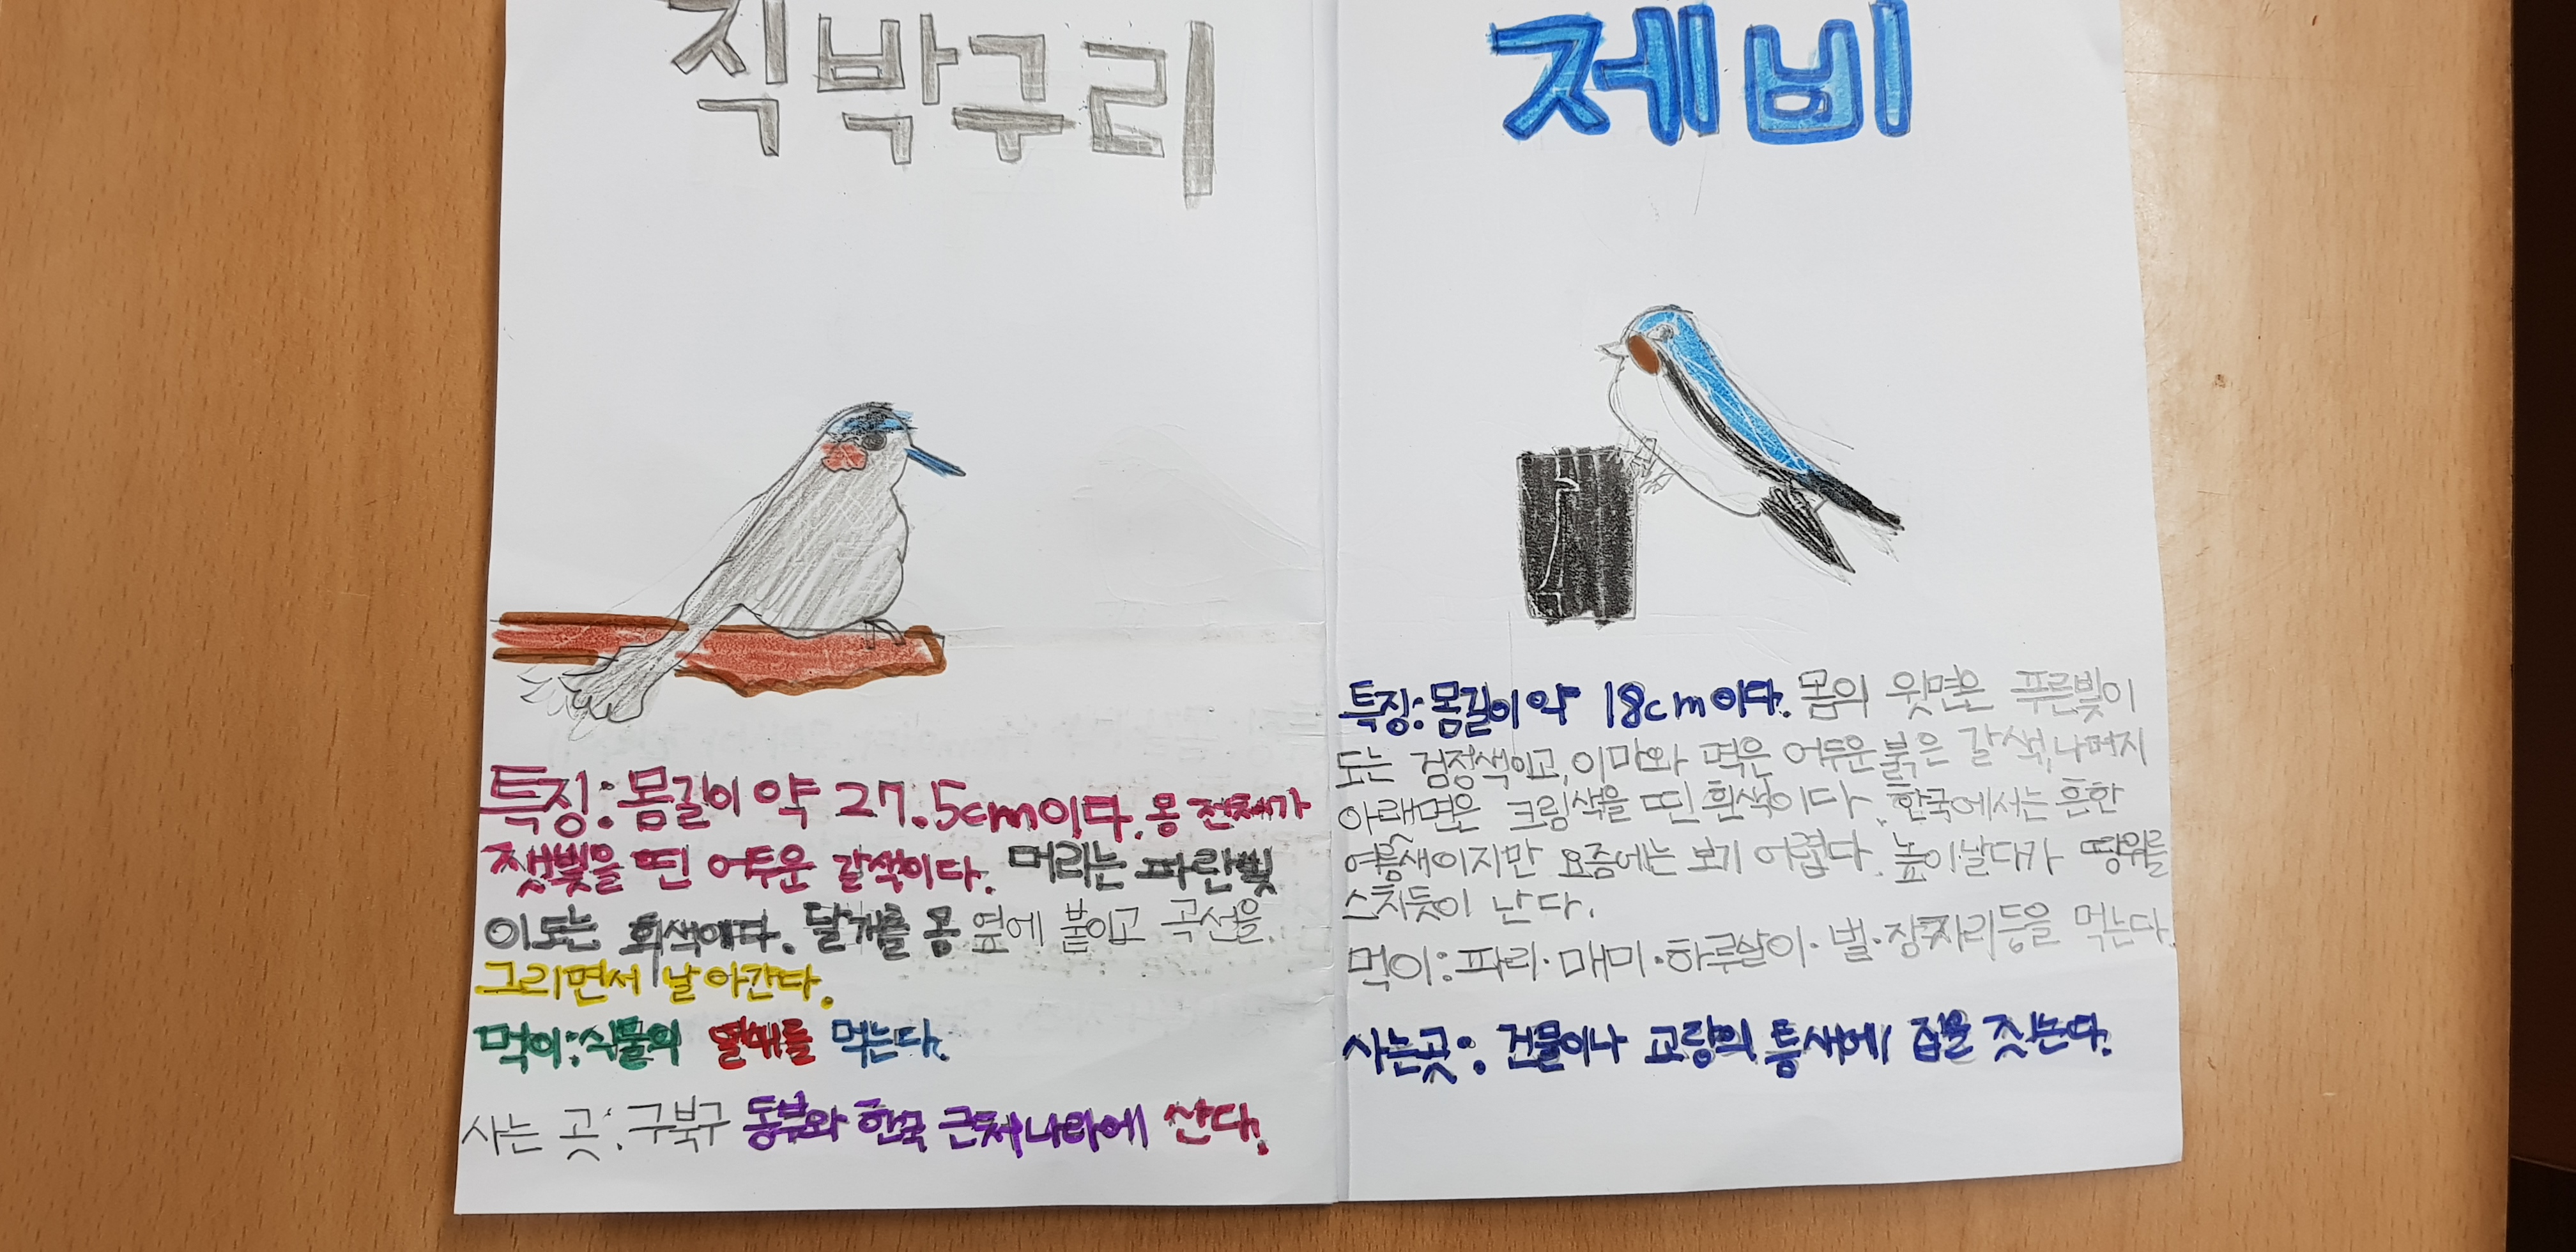 직박구리
특징:몸길이 약 27.5cm이다. 몽 전체가
잿빛을 띤 어두운 갈색이다. 머리는 파란빛
이도는 회색이다. 날개를 몸 옆에 붙이고 곡선을
그리면서 날아간다.
먹이:식물의 열매를 먹는다.
사는 곳:구북구 동부와 한국 근처나라에 산다.
제비
특징:몸길이 약 18cm이다. 몸의 윗면은 푸른빛이
도는 검정색이고, 이마와 멱은 어두운 붉은 갈색, 나머지
아래면은 크림색을 띤 흰색이다. 한국에서는 흔한
여름새이지만 요즘에는 보기 어렵다. 높이날다가 땅위를
스치듯이 난다.
먹이:파리·매미·하루살이·벌·잠자리등을 먹는다.
사는곳: 건물이나 교량의 틈새에 집을 짓는다.